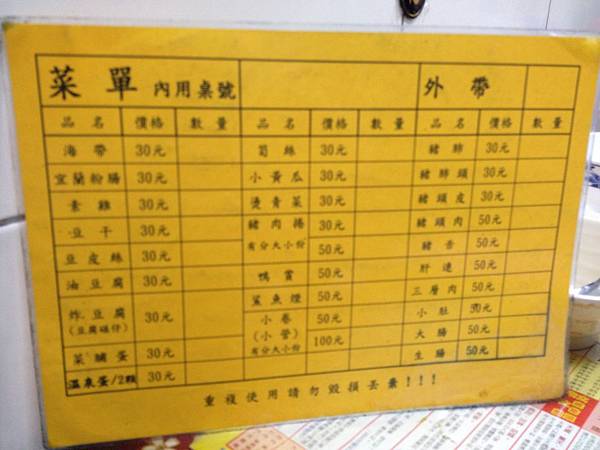 菜單 內用桌號 外帶
品名 價格 數量 品名 價格 數量 品名 價格 數量
海帶 30元 筍絲 30元 豬肺 30元
宜蘭粉腸 30元 小黃瓜 30元 豬肺頭 30元
素雞 30元 燙青菜 30元 豬頭皮 30元
豆干 30元 豬肉捲 30元 豬頭肉 50元
豆皮絲 30元 有分大小份 50元 豬舌 50元
油豆腐 30元 鴨賞 50元 肝連 50元
炸豆腐 30元 鯊魚煙 50元 三層肉 50元
(豆腐碰仔) 小卷 50元 小肚 30元
菜脯蛋 30元 (小管) 100元 大腸 50元
溫泉蛋/2顆 30元 有分大小份 生腸 50元
重複使用請勿毀損丟棄!!!